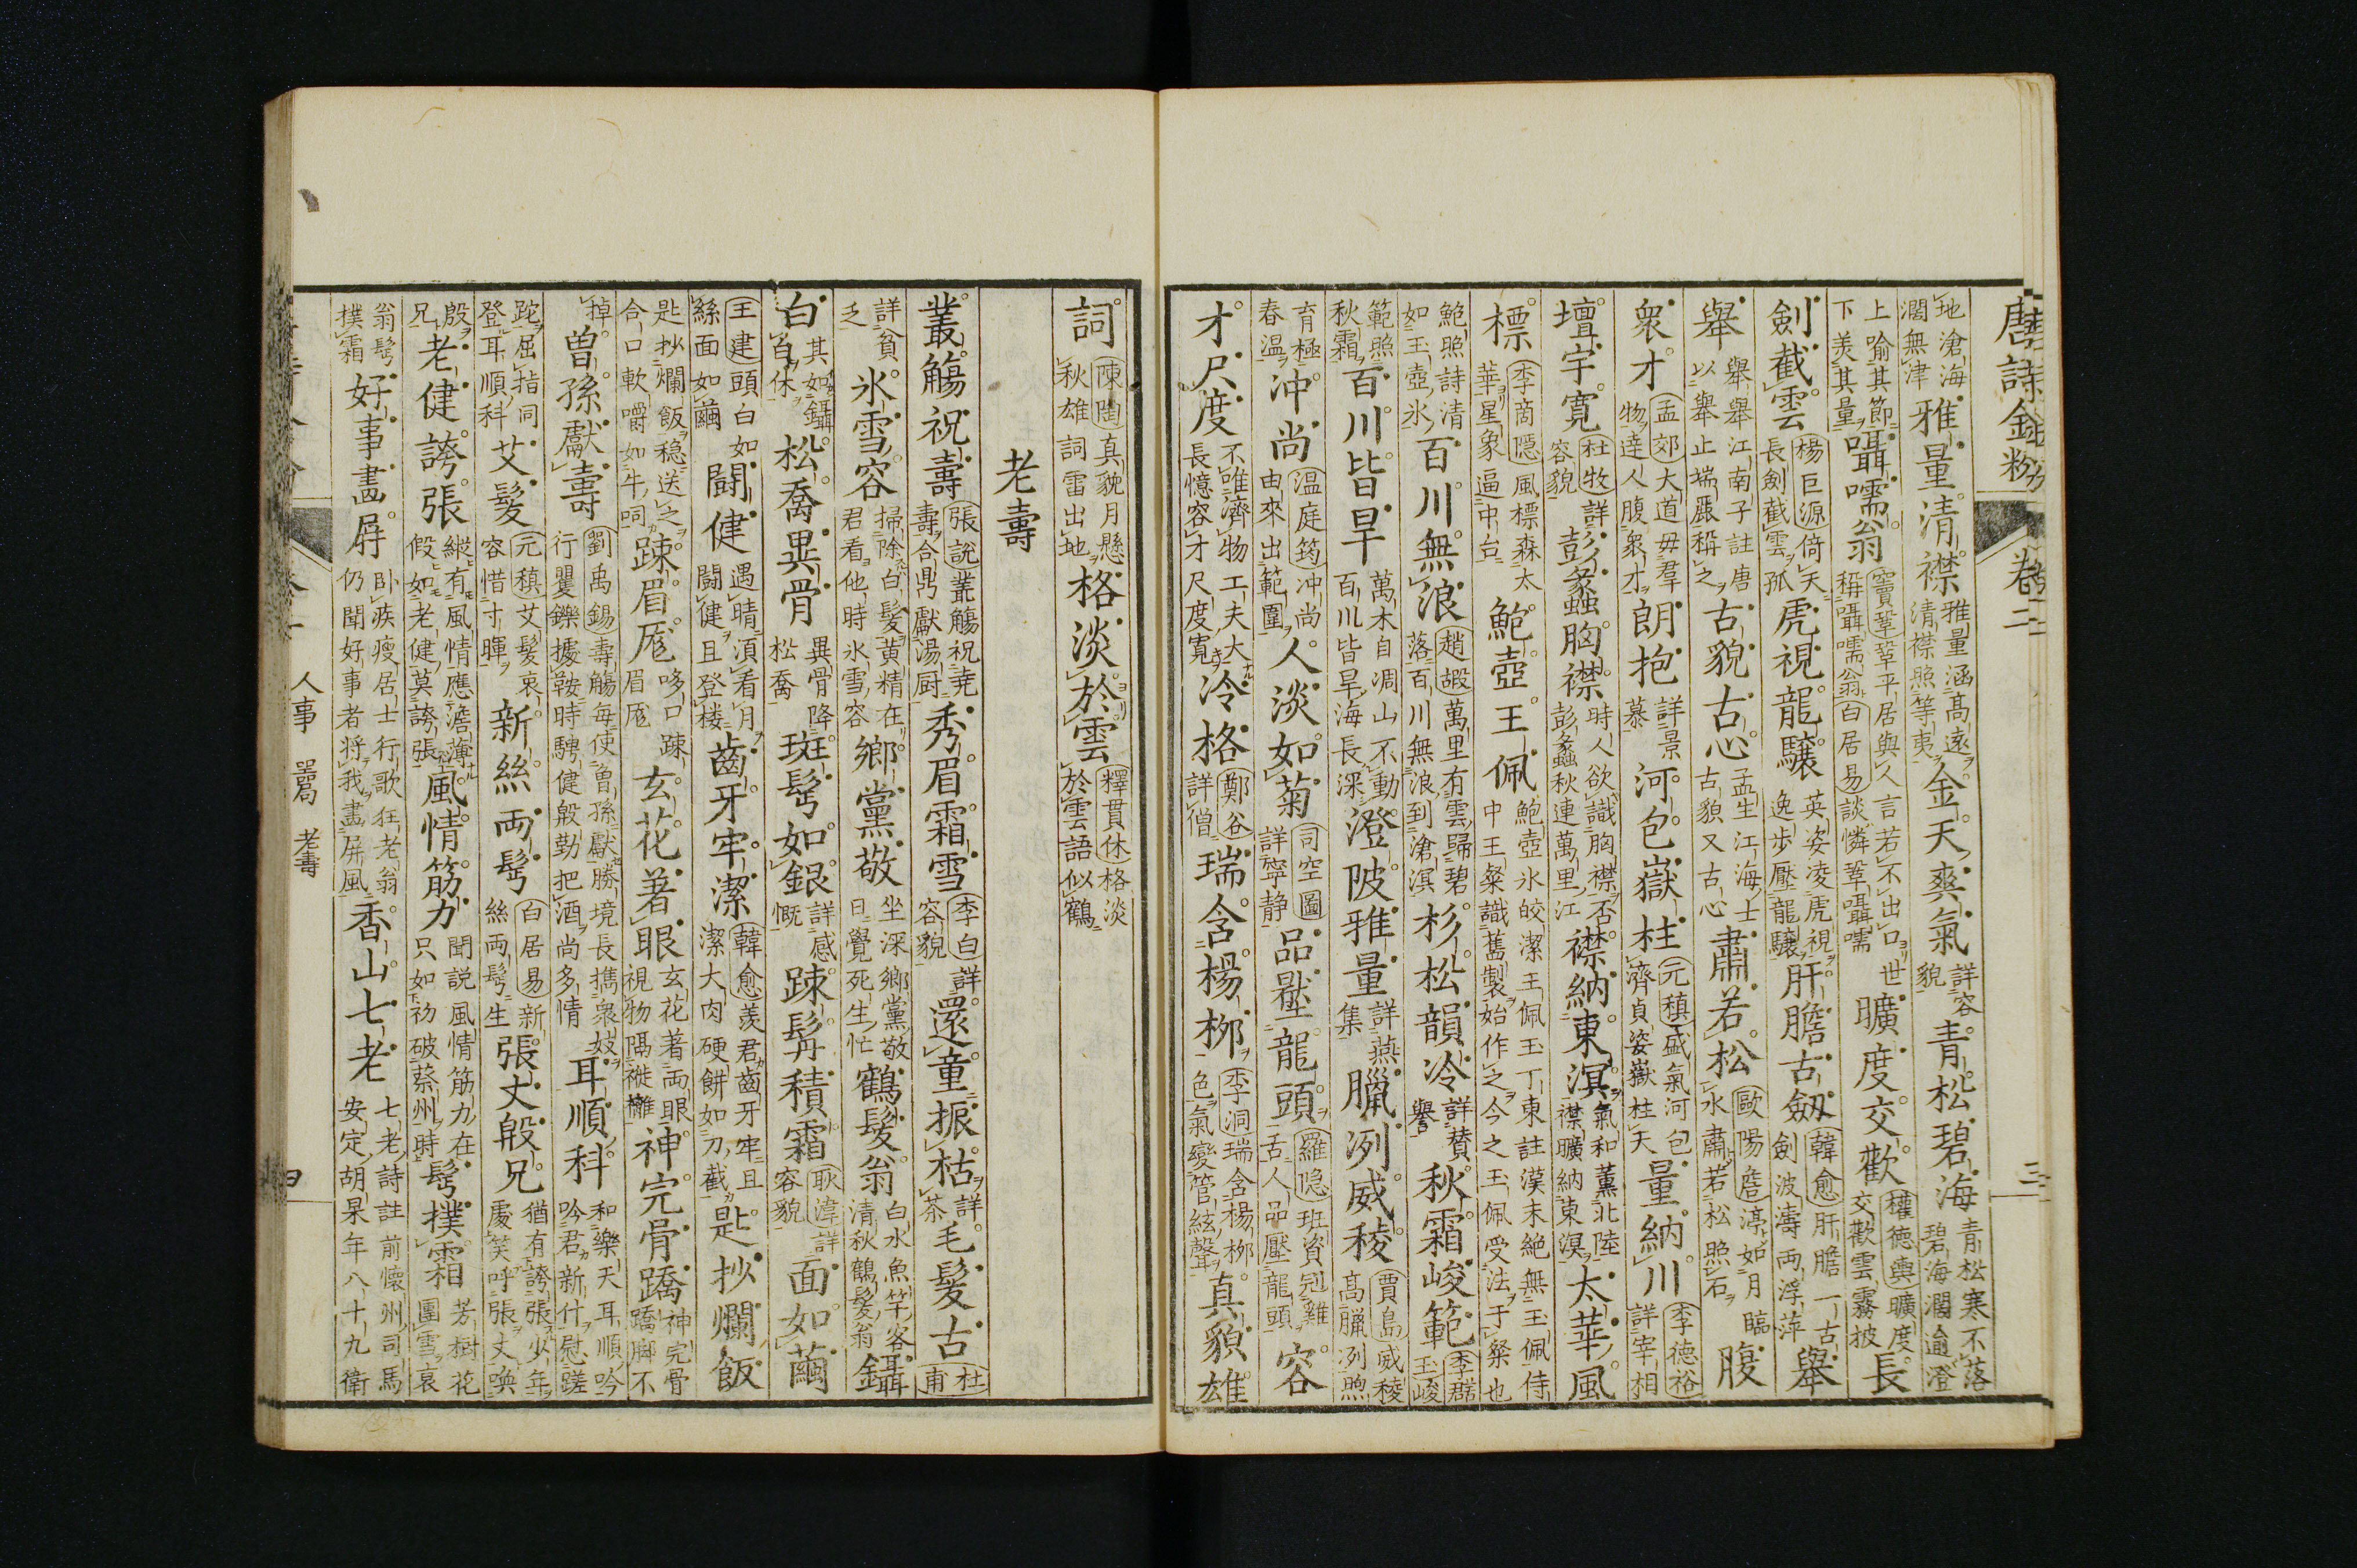 唐詩金粉 卷二 三
地滄海濶無津 雅量清襟 雅量涵高遠清襟照等夷 金天爽氣 詳容貌 青松碧海 青松寒不落碧海濶逾澄
上喻其節下美其量 囁嚅翁 竇鞏鞏平居與人言若不出口世稱囁嚅翁 白居易談憐鞏囁嚅 曠度交歡 權德輿曠度交歡雲霧披 長
劍截雲 楊巨源倚天長劍截雲孤 虎視龍驤 英姿凌虎視逸步壓龍驤 肝膽古劔 韓愈肝膽一古劍波濤兩浮萍 舉
舉 舉舉江南子註唐以舉止端麗稱之 古貌古心 孟生江海士古貌又古心 肅若松 歐陽詹渟如月臨水肅若松照石 腹
衆才 孟郊大道毋羣物達人腹衆才 朗抱 詳景慕 河包嶽柱 元稹盛氣河包濟貞姿嶽柱天 量納川 李德裕詳宰相
壇宇寬 杜牧詳容貌 彭蠡胸襟 時人欲識胸襟否彭蠡秋連萬里江 襟納東溟 氣和薰北陸襟曠納東溟 太華風
標 李商隱風標森太華星象逼中台 鮑壺王佩 鮑壺氷皎潔王佩玉丁東註漢末絶無玉佩侍中王粲識舊製始作之今之玉佩受法于粲也
鮑照詩清如玉壺氷 百川無浪 趙嘏萬里有雲歸碧落百川無浪到滄溟 杉松韻冷 詳賛譽 秋霜峻範 李群玉峻
範照秋霜 百川皆旱 萬木自凋山不動百川皆旱海長深 澄陂雅量 詳燕集 臘冽威稜 賈島威稜高臘冽煦
育極春温 冲尚 温庭筠冲尚由來出範圍 人淡如菊 司空圖詳寧静 品壓龍頭 羅隠班資冠雞舌人品壓龍頭 容
才尺度 不唯濟物工夫大長憶容才尺度寛 冷格 鄭谷詳僧 瑞含楊栁 李洞瑞含楊栁色氣變管絃聲 真貌雄
詞 陳陶真貌月懸秋雄詞雷出地 格淡於雲 釋貫休格淡於雲語似鶴
老壽
叢觴祝壽 張說叢觴祝堯壽合鼎獻湯厨 秀眉霜雪 李白詳容貌 還童振枯 詳茶 毛髮古 杜甫
詳貧乏 氷雪容 掃除白髮黄精在君看他時氷雪容 鄉黨敬 坐深鄉黨敬日覺死生忙 鶴髮翁 白水魚竿客清秋鶴髮翁 鑷
白 其如鑷百休 松喬異骨 異骨降松喬 斑髩如銀 詳感慨 踈髯積霜 耿湋詳容貌 面如繭
王建頭白如絲面如繭 鬪健 遇晴須看月鬪健且登楼 齒牙牢潔 韓愈羨君齒牙牢且潔大肉硬餅如刀截 匙抄爛飯
匙抄爛飯穏送之合口軟嚼如牛呞 踈眉厖 哆口踈眉厖 玄花著眼 玄花著兩眼視物隔褷䍦 神完骨蹻 神完骨蹻脚不
掉 曽孫獻壽 劉禹錫壽觴每使曽孫獻勝境長擕衆妓行矍鑠據鞍時騁健殷勤把酒尚多情 耳順科 和樂天耳順吟吟君新什慰蹉
跎屈指同登耳順科 艾髮 元稹艾髮衰容惜寸暉 新絲兩髩 白居易新絲兩髩生 張丈殷兄 猶有誇張少年處笑呼張丈喚
殷兄 老健誇張 縱有風情應澹薄假如老健莫誇張 風情筋力 聞説風情筋力在只如初破蔡州時 髩撲霜 芳樹花團雪衰
翁髩撲霜 好事畫屏 卧疾瘦居士行歌狂老翁仍聞好事者将我畫屏風 香山七老 七老詩註前懷州司馬安定胡杲年八十九衛
人事 老壽 四